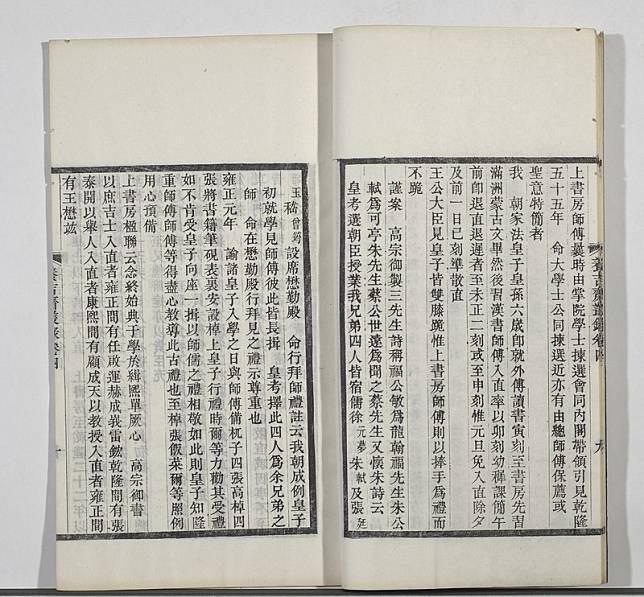 上書房師傅曩時由掌院學士揀選會同内閣帶領引見乾隆
五十五年　命大學士公同揀選近亦有由總師傅保薦或
聖意特簡者
我　朝家法皇子皇孫六歲卽就外傅讀書寅刻至書房先習
滿洲蒙古文畢然後習漢書師傅入直率以卯刻幼稚課簡午
前卽退直退遲者至未正二刻或至申刻惟元旦免入直除夕
及前一日巳刻準散直
王公大臣見皇子皆雙膝跪惟上書房師傅則以捧手爲禮而
不跪
謹案　高宗御製三先生詩稱福公敏爲龍翰福先生朱公
軾爲可亭朱先生蔡公世遠爲聞之蔡先生又懷朱詩云
皇考選朝臣授業我兄弟四人皆宿儒徐元夢朱軾及張廷
養吉齋叢錄卷四
九
玉嵇曾筠設席懋勤殿　命行拜師禮註云我朝成例皇子
初就學見師傅彼此皆長揖　皇考擇此四人爲余兄弟之
師　命在懋勤殿行拜見之禮示尊重也
雍正元年　諭諸皇子入學之日與師傅備杌子四張高棹四
張將書籍筆硯表裏安設棹上皇子行禮時爾等力勸其受禮
如不肯受皇子向座一揖以師儒之禮相敬如此則皇子知隆
重師傅師傅等得盡心教導此古禮也至棹張飯菜爾等照例
用心預備
上書房楹聯云念終始典于學於緝熙單厥心　高宗御書
以庶吉士入直者雍正間有任啟運赫成峩雷鋐乾隆間有張
泰開以舉人入直者康熙間有顧成天以教授入直者雍正間
有王懋竑
養吉齋叢錄卷四
十